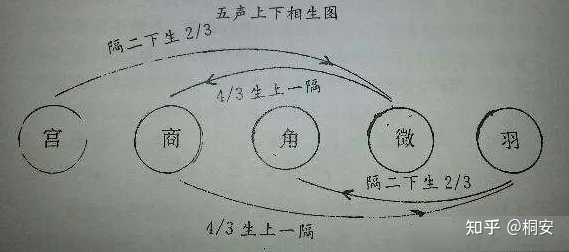 五声上下相生图
隔二下生 2/3
4/3 生上一隔
宫 商 角 微 羽
隔二下生 2/3
4/3 生上一隔
知乎 @桐安